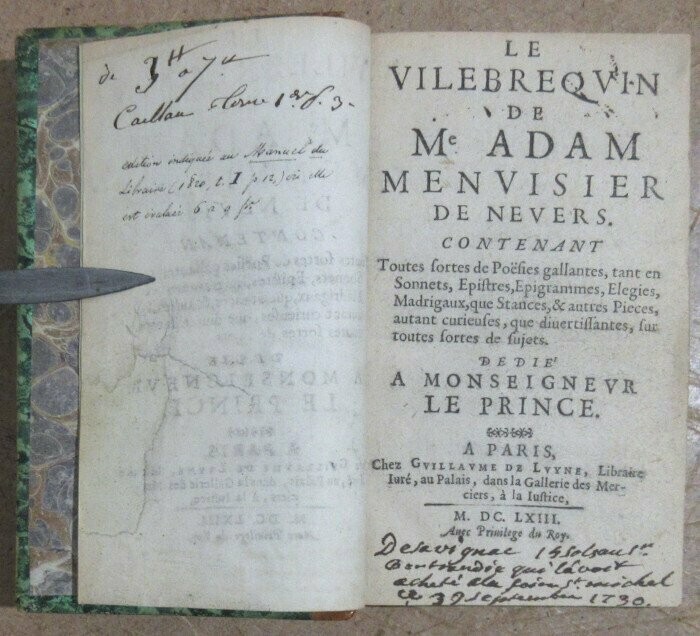 de 3ᵗᵗ à 7ᵗᵗ
Caillau Tome 1er p. 3.
edition indiquée au Manuel du
Libraire (1820, t. I p 12) où elle
est évaluée 6 à 9 frs
LE
VILEBREQVIN
DE
Me ADAM
MENVISIER
DE NEVERS.
CONTENANT
Toutes sortes de Poësies gallantes, tant en
Sonnets, Epistres, Epigrammes, Elegies,
Madrigaux, que Stances, & autres Pieces,
autant curieuses, que divertissantes, sur
toutes sortes de sujets.
DEDIE'
A MONSEIGNEVR
LE PRINCE.
A PARIS,
Chez GVILLAVME DE LVYNE, Libraire
Iuré, au Palais, dans la Gallerie des Mer-
ciers, à la Iustice,
M. DC. LXIII.
Auec Priuilege du Roy.
Desavignac
qui l'avoit
acheté a la foire St. michel
ce septembre 1730.